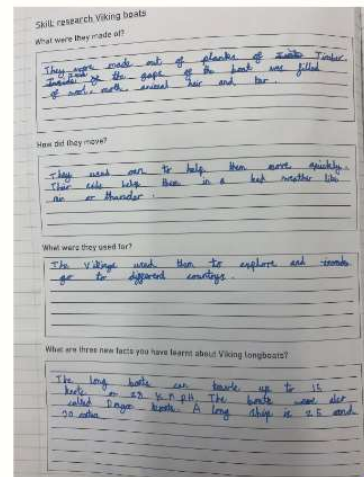 Skill: research Viking boats
What were they made of?
They were made out of planks of Timber.
Inside of the gaps of the boat was filled
of wool, moth, animal hair and tar.
How did they move?
They used oars to help them move quickly.
Their sails help them in a bad weather like
rain or thunder.
What were they used for?
The Vikings used them to explore and
go to different countrys.
What are three new facts you have learnt about Viking longboats?
The long boats can travle up to 15
knots or 28 K.M PH. The boats were also
called Dragon boats. A long ship is 25 and
30 metres